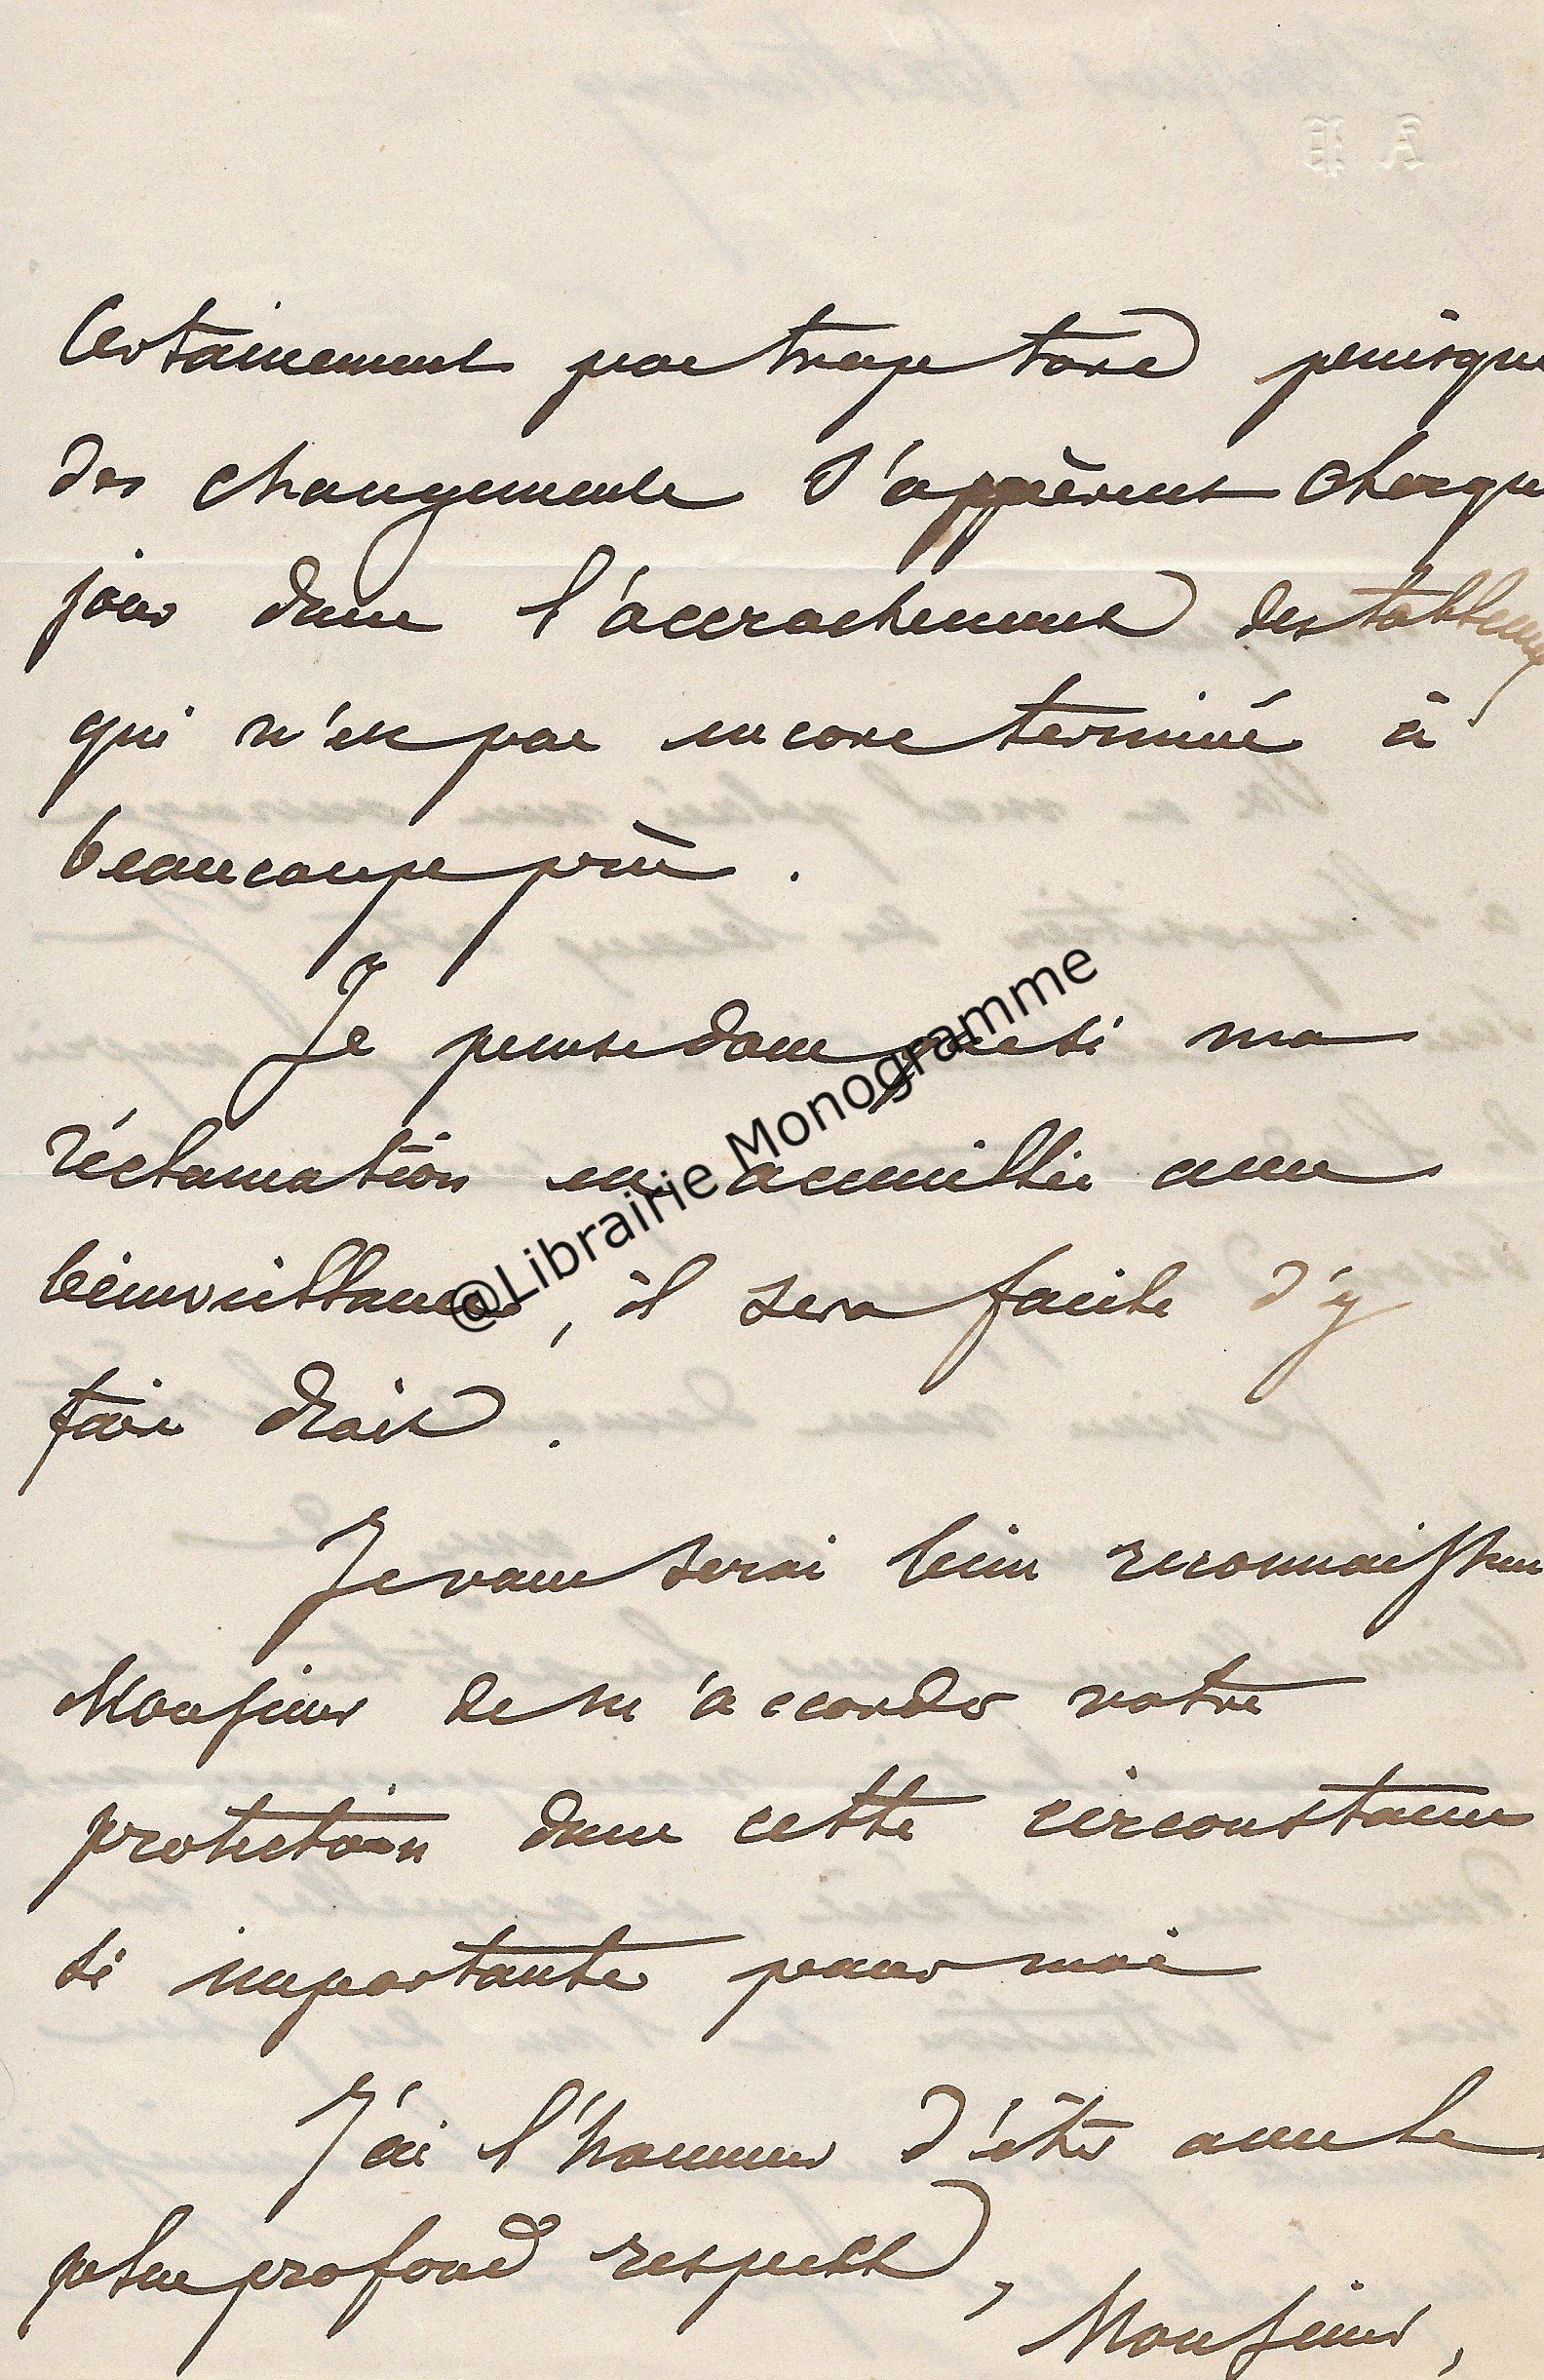 A P
Certainement pas trop tard puisque
des changements s'opèrent chaque
jour dans l'accrochement des tableaux
qui n'est pas encore terminé à
beaucoup près.
Je pense donc que si ma
réclamation est accueillie avec
bienveillance, il sera facile d'y
faire droit.
Je vous serai bien reconnaissant
Monsieur de m'accorder votre
protection dans cette circonstance
si importante pour moi
J'ai l'honneur d'être avec le
plus profond respect,
Monsieur,
@Librairie Monogramme